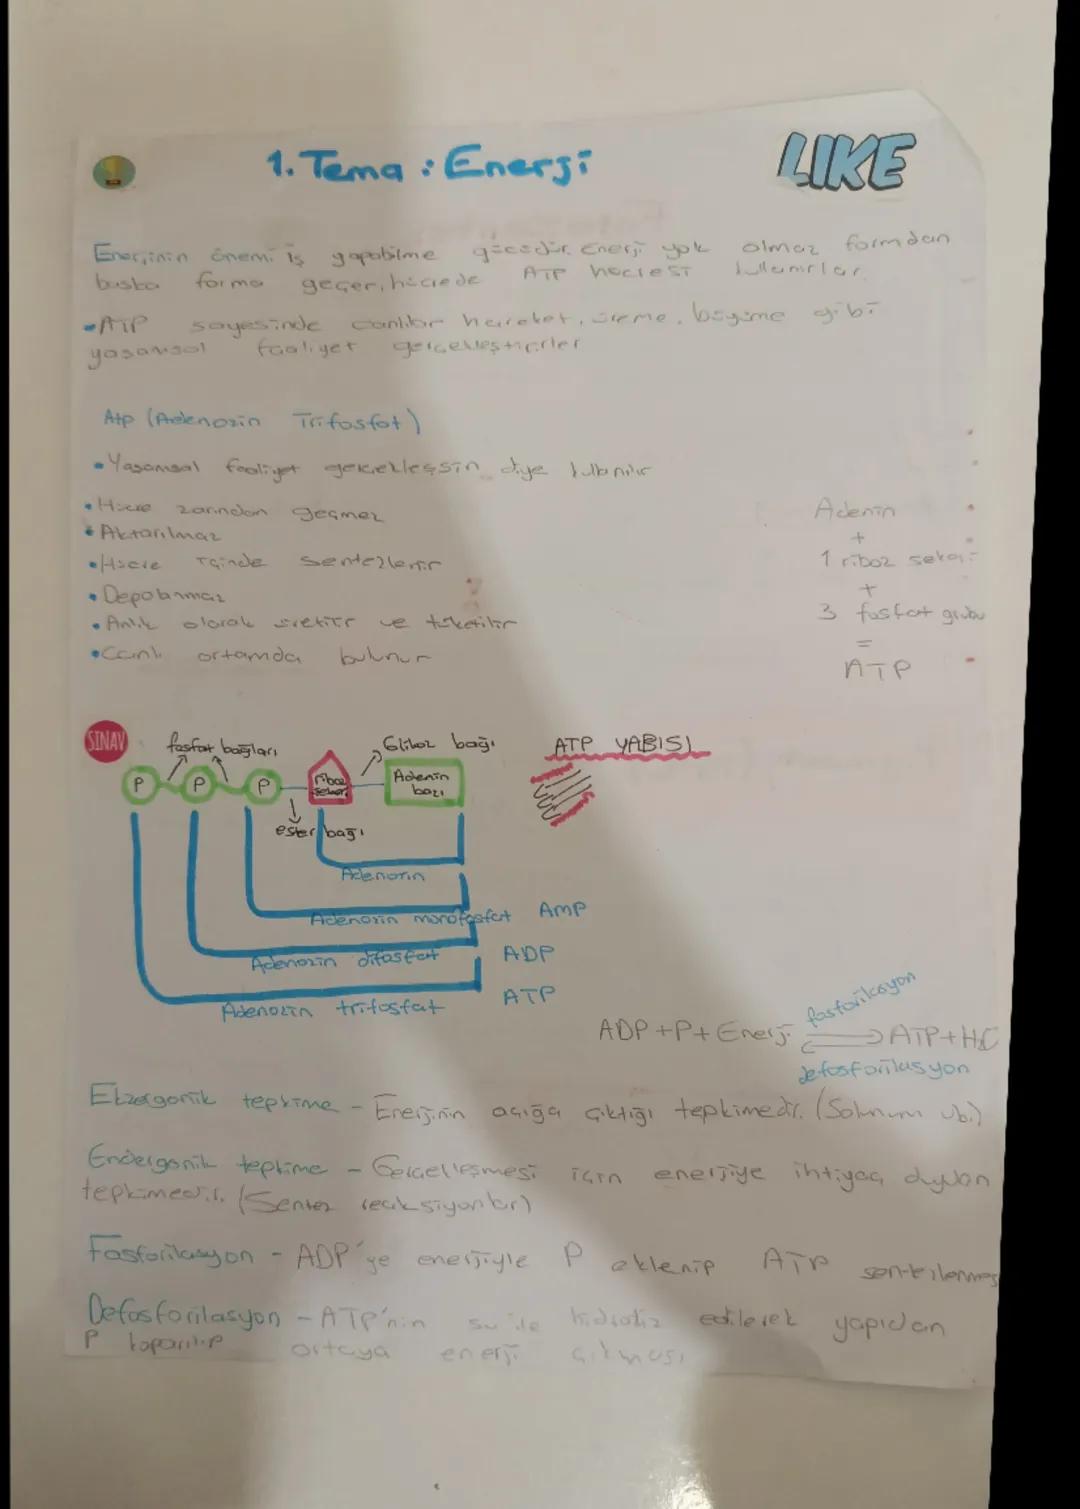 1. Tema : Enerji
LIKE
Enerjinin önemi iş yapabilme gücüdür. Enerji yok olmaz formdan
başka forma geçer, hücrede ATP kullanırlar.
ATP sayesinde canlılar hareket, üreme, büyüme gibi
yaşamsal faaliyet gerçekleştirirler
Atp (Adenozin Trifosfat)
• Yaşamsal faaliyet gerçekleşsin diye kullanılır
• Hücre zarından geçmez
• Aktarılmaz
• Hücre içinde sentezlenir
• Depolanmaz
• Anlık olarak üretilir ve tüketilir
• Canlı ortamda bulunur
Adenin
+
1 riboz şekeri
+
3 fosfat grubu
=
ATP
SINAV
fosfat bağları
Glikoz bağı
ATP YABISI
P P P riboz şekeri Adenin bazı
ester bağı
Adenozin
Adenozin monofosfat AMP
Adenozin difosfat ADP
Adenozin trifosfat ATP
fosforilasyon
ADP + P + Enerji ⇌ ATP + H₂O
defosforilasyon
Ekzergonik tepkime - Enerjinin açığa çıktığı tepkimedir. (Solunum vb.)
Endergonik tepkime - Gerçekleşmesi için enerjiye ihtiyaç duyulan
tepkimedir. (Sentez reaksiyonları)
Fosforilasyon - ADP'ye enerjiyle P eklenip ATP sentezlenmesi
Defosforilasyon - ATP'nin su ile hidroliz edilerek yapıdan
P koparılıp ortaya enerji çıkması